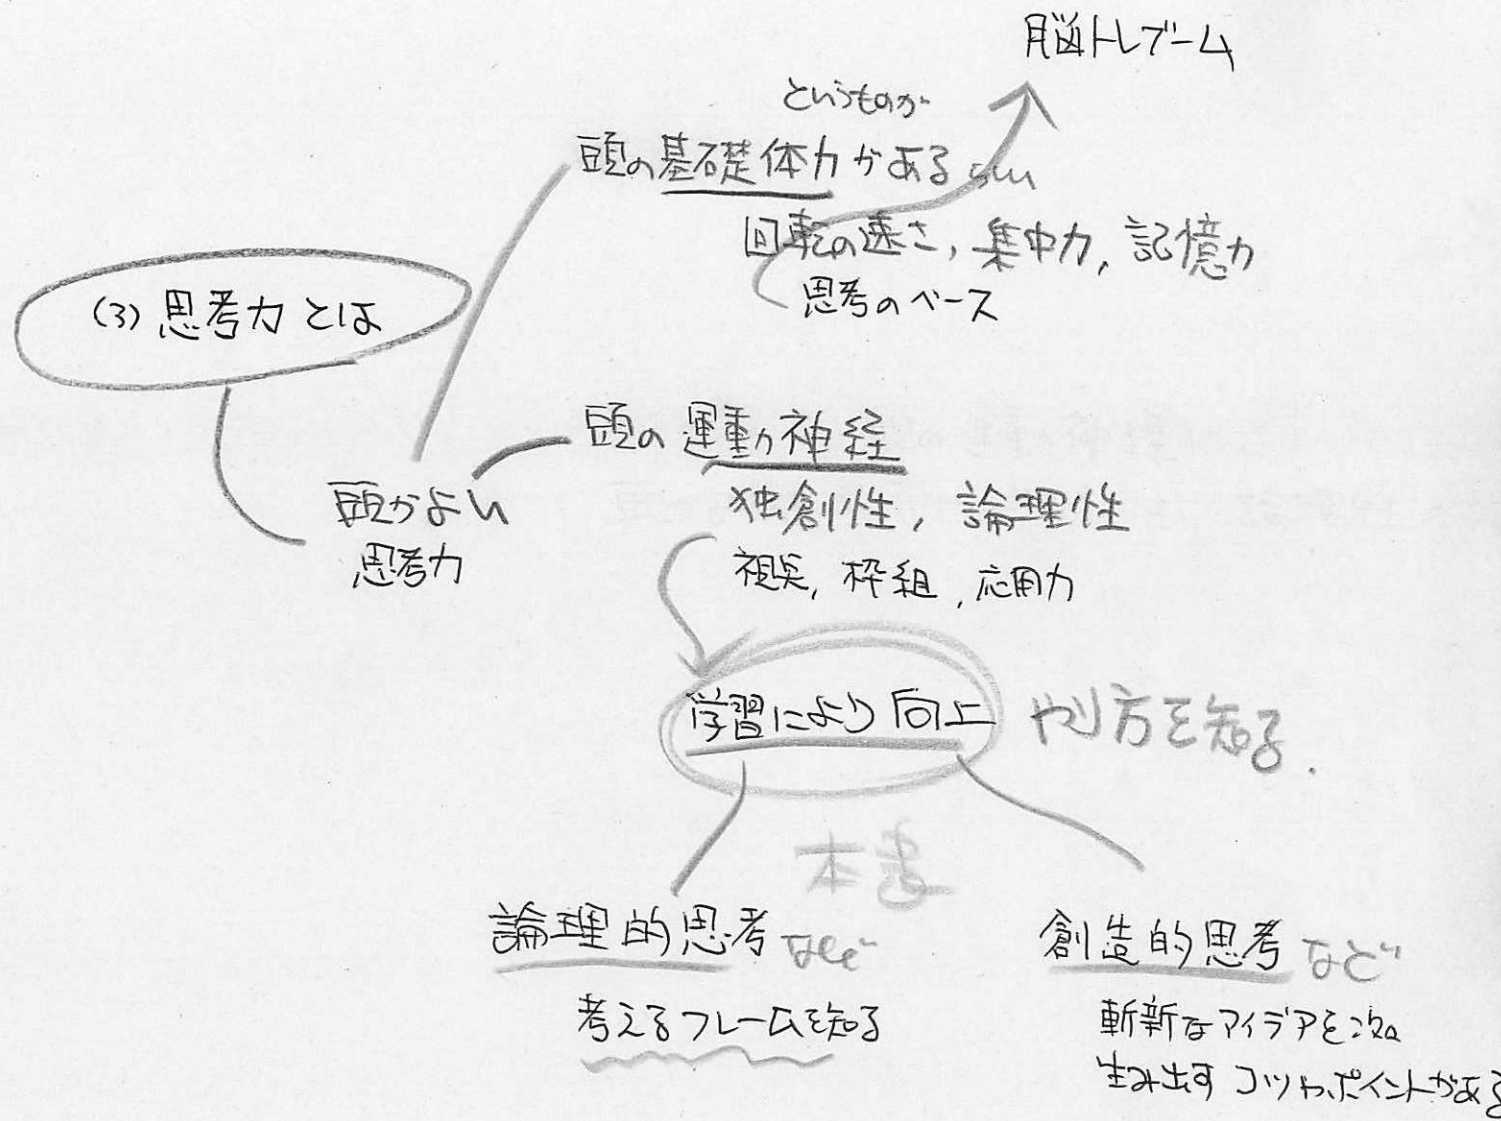 脳トレブーム
というものが
頭の基礎体力がある らしい
回転の速さ, 集中力, 記憶力
思考のベース
(3) 思考力とは
頭の運動神経
頭がよい
思考力
独創性, 論理性
視点, 枠組, 応用力
学習により向上 やり方を知る.
本書
論理的思考 など
考えるフレームを知る
創造的思考 など
斬新なアイデアを次々
生み出すコツやポイントがある